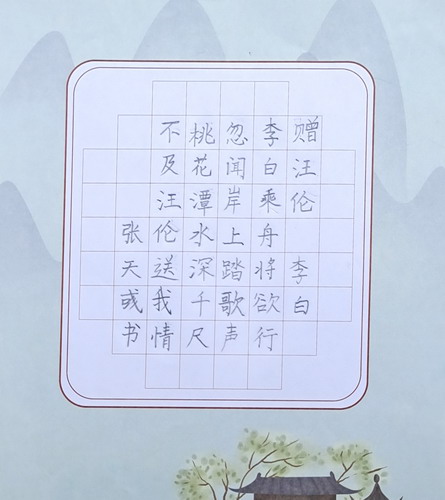 赠汪伦 李白
李白乘舟将欲行
忽闻岸上踏歌声
桃花潭水深千尺
不及汪伦送我情
张天或书